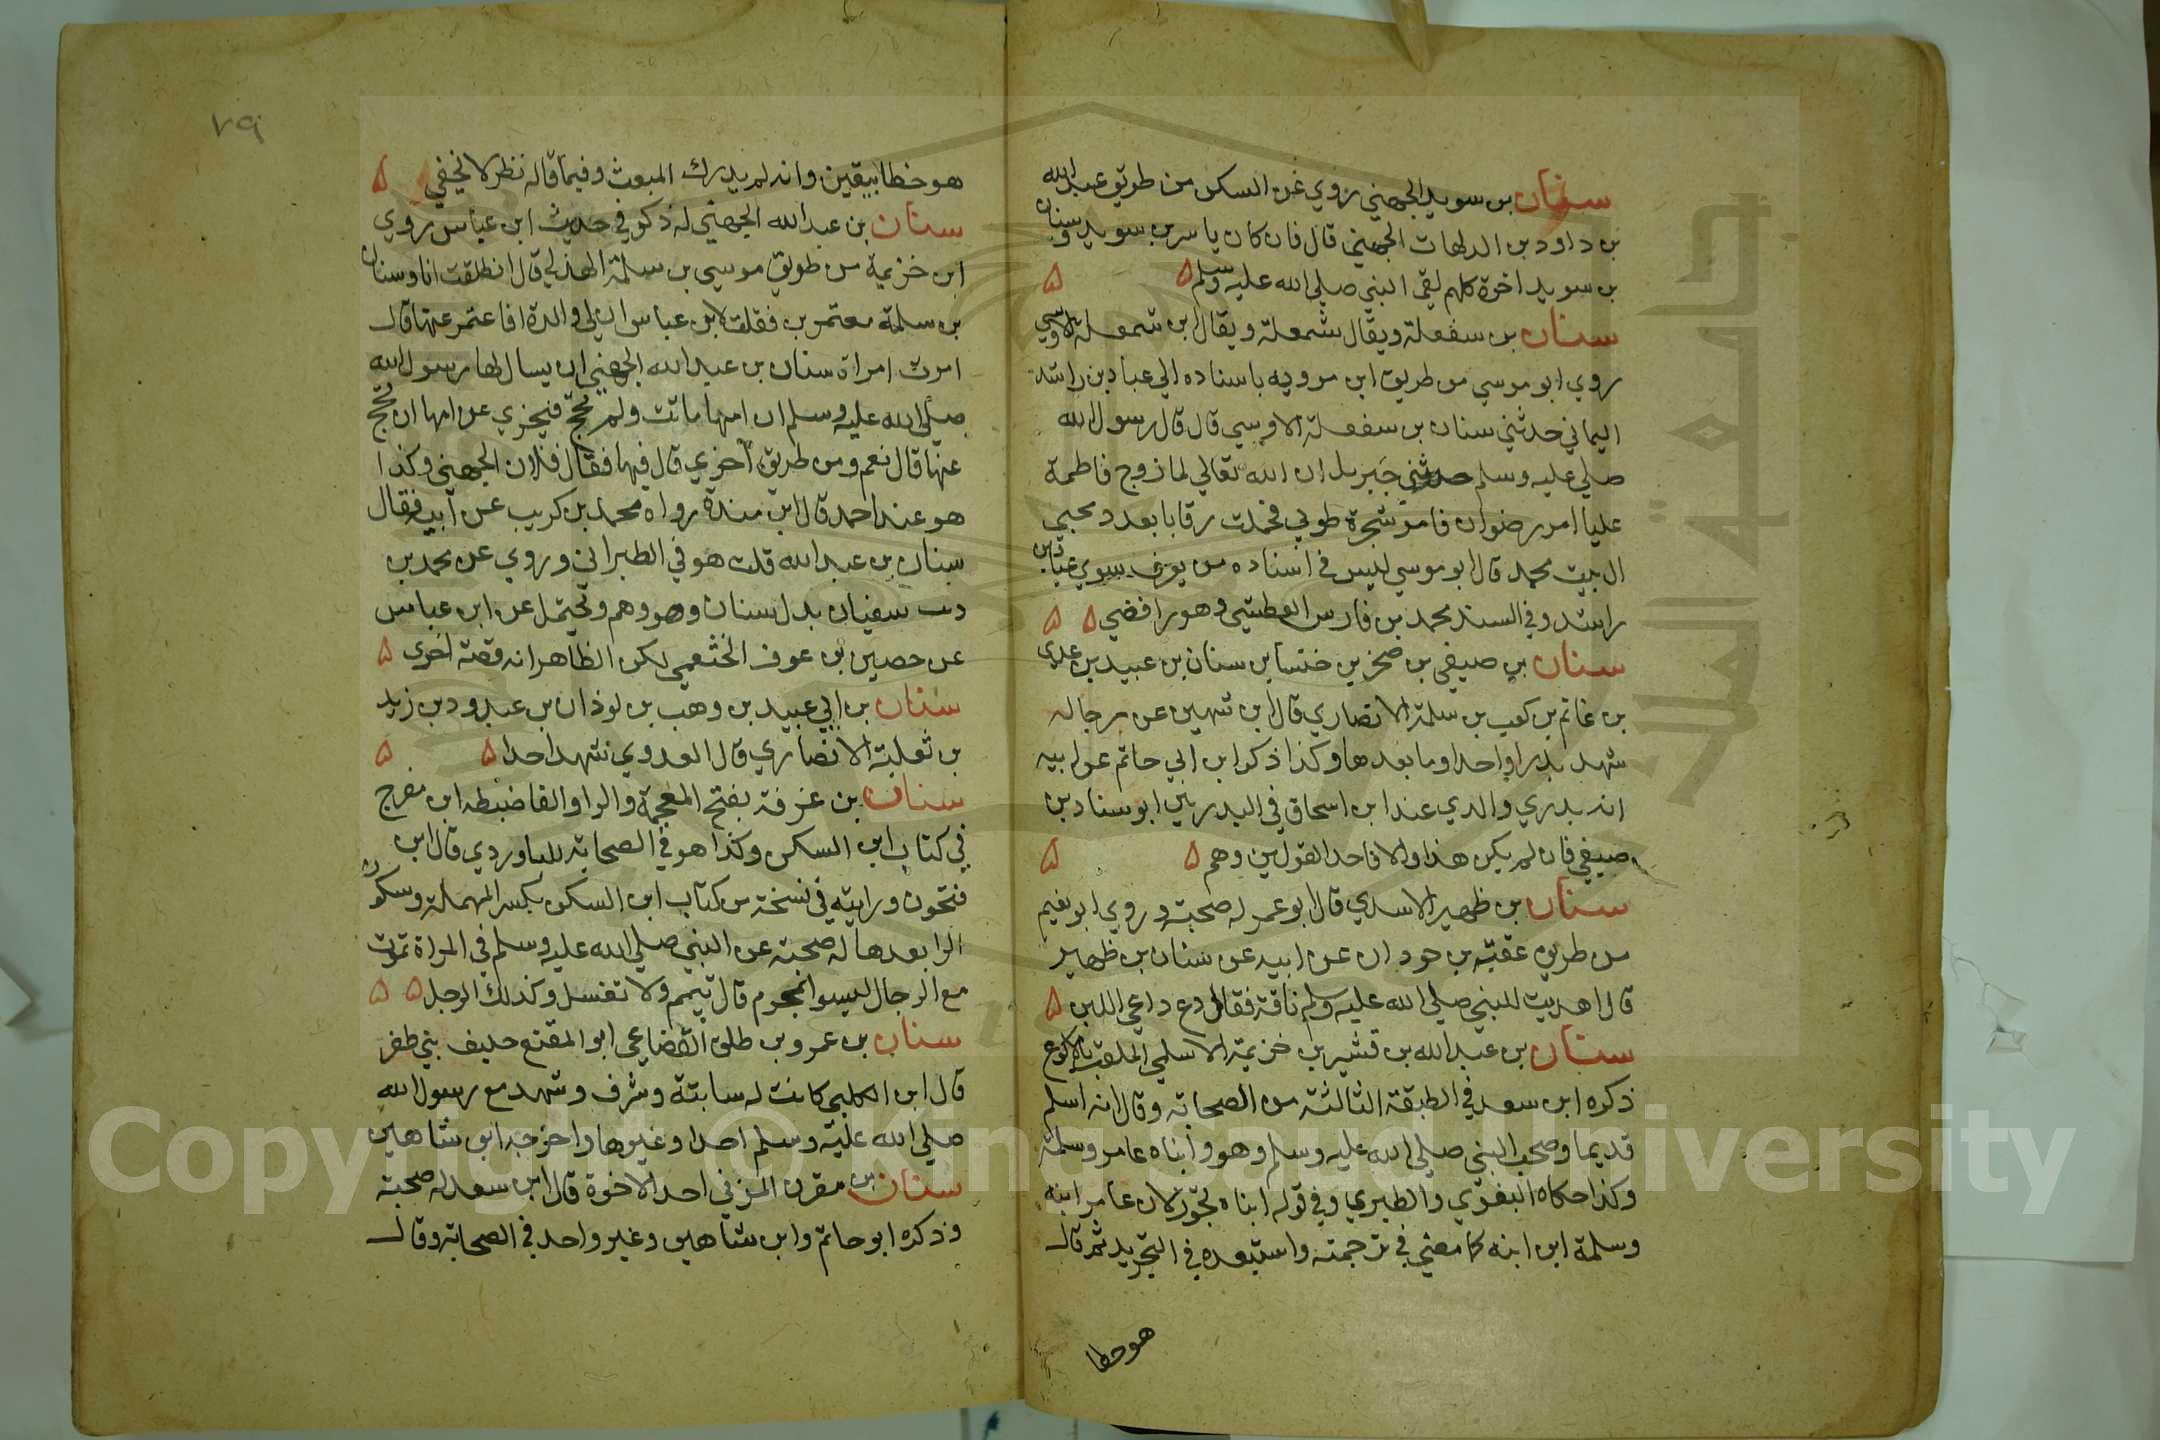 سنان بن سويد الجهني روي عن السكن من طريق عبدالله
بن داود بن الدلهات الجهني قال فان كان ياسر بن سويد وسنان
بن سويد اخوة كلهم لقي النبي صلي الله عليه وسلم ه ه
سنان بن سفعلة ويقال شمعلة ويقال ابن شمعلة الاوسي
روي ابو موسي من طريق ابن مردويه باسناده الي عباد بن راشد
اليماني حدثني سنان بن سفعلة الاوسي قال قال رسول الله
صلي عليه وسلم حدثني جبريل ان الله تعالي لما زوج فاطمة
عليا امر رضوان فامر شجرة طوبي فحملت رقابا بعدد محبي
ال بيت محمد قال ابو موسي ليس في اسناده من يعرف سوي عباد بن
راشد وفي السند محمد بن فارس العطشي وهو رافضي ه ه
سنان بن صيفي بن صخر بن خنسا بن سنان بن عبيد بن عدي
بن غانم بن كعب بن سلمة الانصاري قال ابن شهين عن رجاله
شهد بدرا واحدا وما بعدها وكذا ذكر ابن ابي حاتم عن ابيه
انه بدري والدي عند ابن اسحاق في البدريين ابو سناد بن
صيفي فان لم يكن هذا والا فاحد القولين وهم ه ه
سنان بن ظهير الاسدي قال ابو عمر له صحبة وروي ابو نعيم
من طريق عقبة بن جودان عن ابيه عن سنان بن ظهير
قال اهديت للنبي صلي الله عليه وسلم ناقة فقال دع داعي اللبن ه
سنان بن عبد الله بن قشير بن خزيمة الاسلمي الملقب بالاكوع
ذكره ابن سعد في الطبقة الثالثة من الصحابة وقال انه اسلم
قديما وصحب النبي صلي الله عليه وسلم وهو وابناه عامر وسلمة
وكذا حكاه البغوي والطبري وفي قوله ابناه تجوز لان عامر ابنه
وسلمة ابن ابنه كما مضي في ترجمته واستبعده في التجريد ثم قال
هو خطا
٧٩
هو خطا بيقين وانه لم يدرك المبعث وفيما قاله نظر لا يخفي ه
سنان بن عبد الله الجهني له ذكر في حديث ابن عباس روي
ابن خزيمة من طريق موسي بن سلمة الهذلي قال انطلقت انا وسنان
بن سلمة معتمرين فقلت لابن عباس ان لي والدة افاعتمر عنها قال
امرت امراة سنان بن عبد الله الجهني ان يسال لها رسول الله
صلي الله عليه وسلم ان امها ماتت ولم تحج فيجزي عن امها ان تحج
عنها قال نعم ومن طريق اخري قال فيها فقال فلان الجهني وكذا
هو عند احمد قال ابن مندة رواه محمد بن كريب عن ابيه فقال
سنان بن عبد الله قلت هو في الطبراني وروي عن محمد بن
سفيان بدل سنان وهو وهم ويحتمل عن ابن عباس
عن حصين بن عوف الخثعمي لكن الظاهر انه قصة اخري ه
سنان بن ابي عبيد بن وهب بن لوذان بن عبدود بن زيد
بن ثعلبة الانصاري قال العدوي شهد احدا ه ه
سنان بن غرفة بفتح المعجمة والرا والفا ضبطه ابن مفرج
في كتاب ابن السكن وكذا هو في الصحابة للباوردي قال ابن
فتحون ورايته في نسخة من كتاب ابن السكن بكسر المهملة وسكون
الرا بعدها له صحبة عن النبي صلي الله عليه وسلم في المراة تموت
مع الرجال ليسوا بمحرم قال تيمم ولا تغسل وكذلك الرجل ه ه
سنان بن عمرو بن طلق القضاعي ابو المقنع حليف بني ظفر
قال ابن الكلبي كانت له سابقة وشرف وشهد مع رسول الله
صلي الله عليه وسلم احدا وغيرها واخرجه ابن شاهين
سنان بن مقرن المزني احد الاخوة قال ابن سعد له صحبة
وذكره ابو حاتم وابن شاهين وغير واحد في الصحابة وقال
Copyright © King Saud University